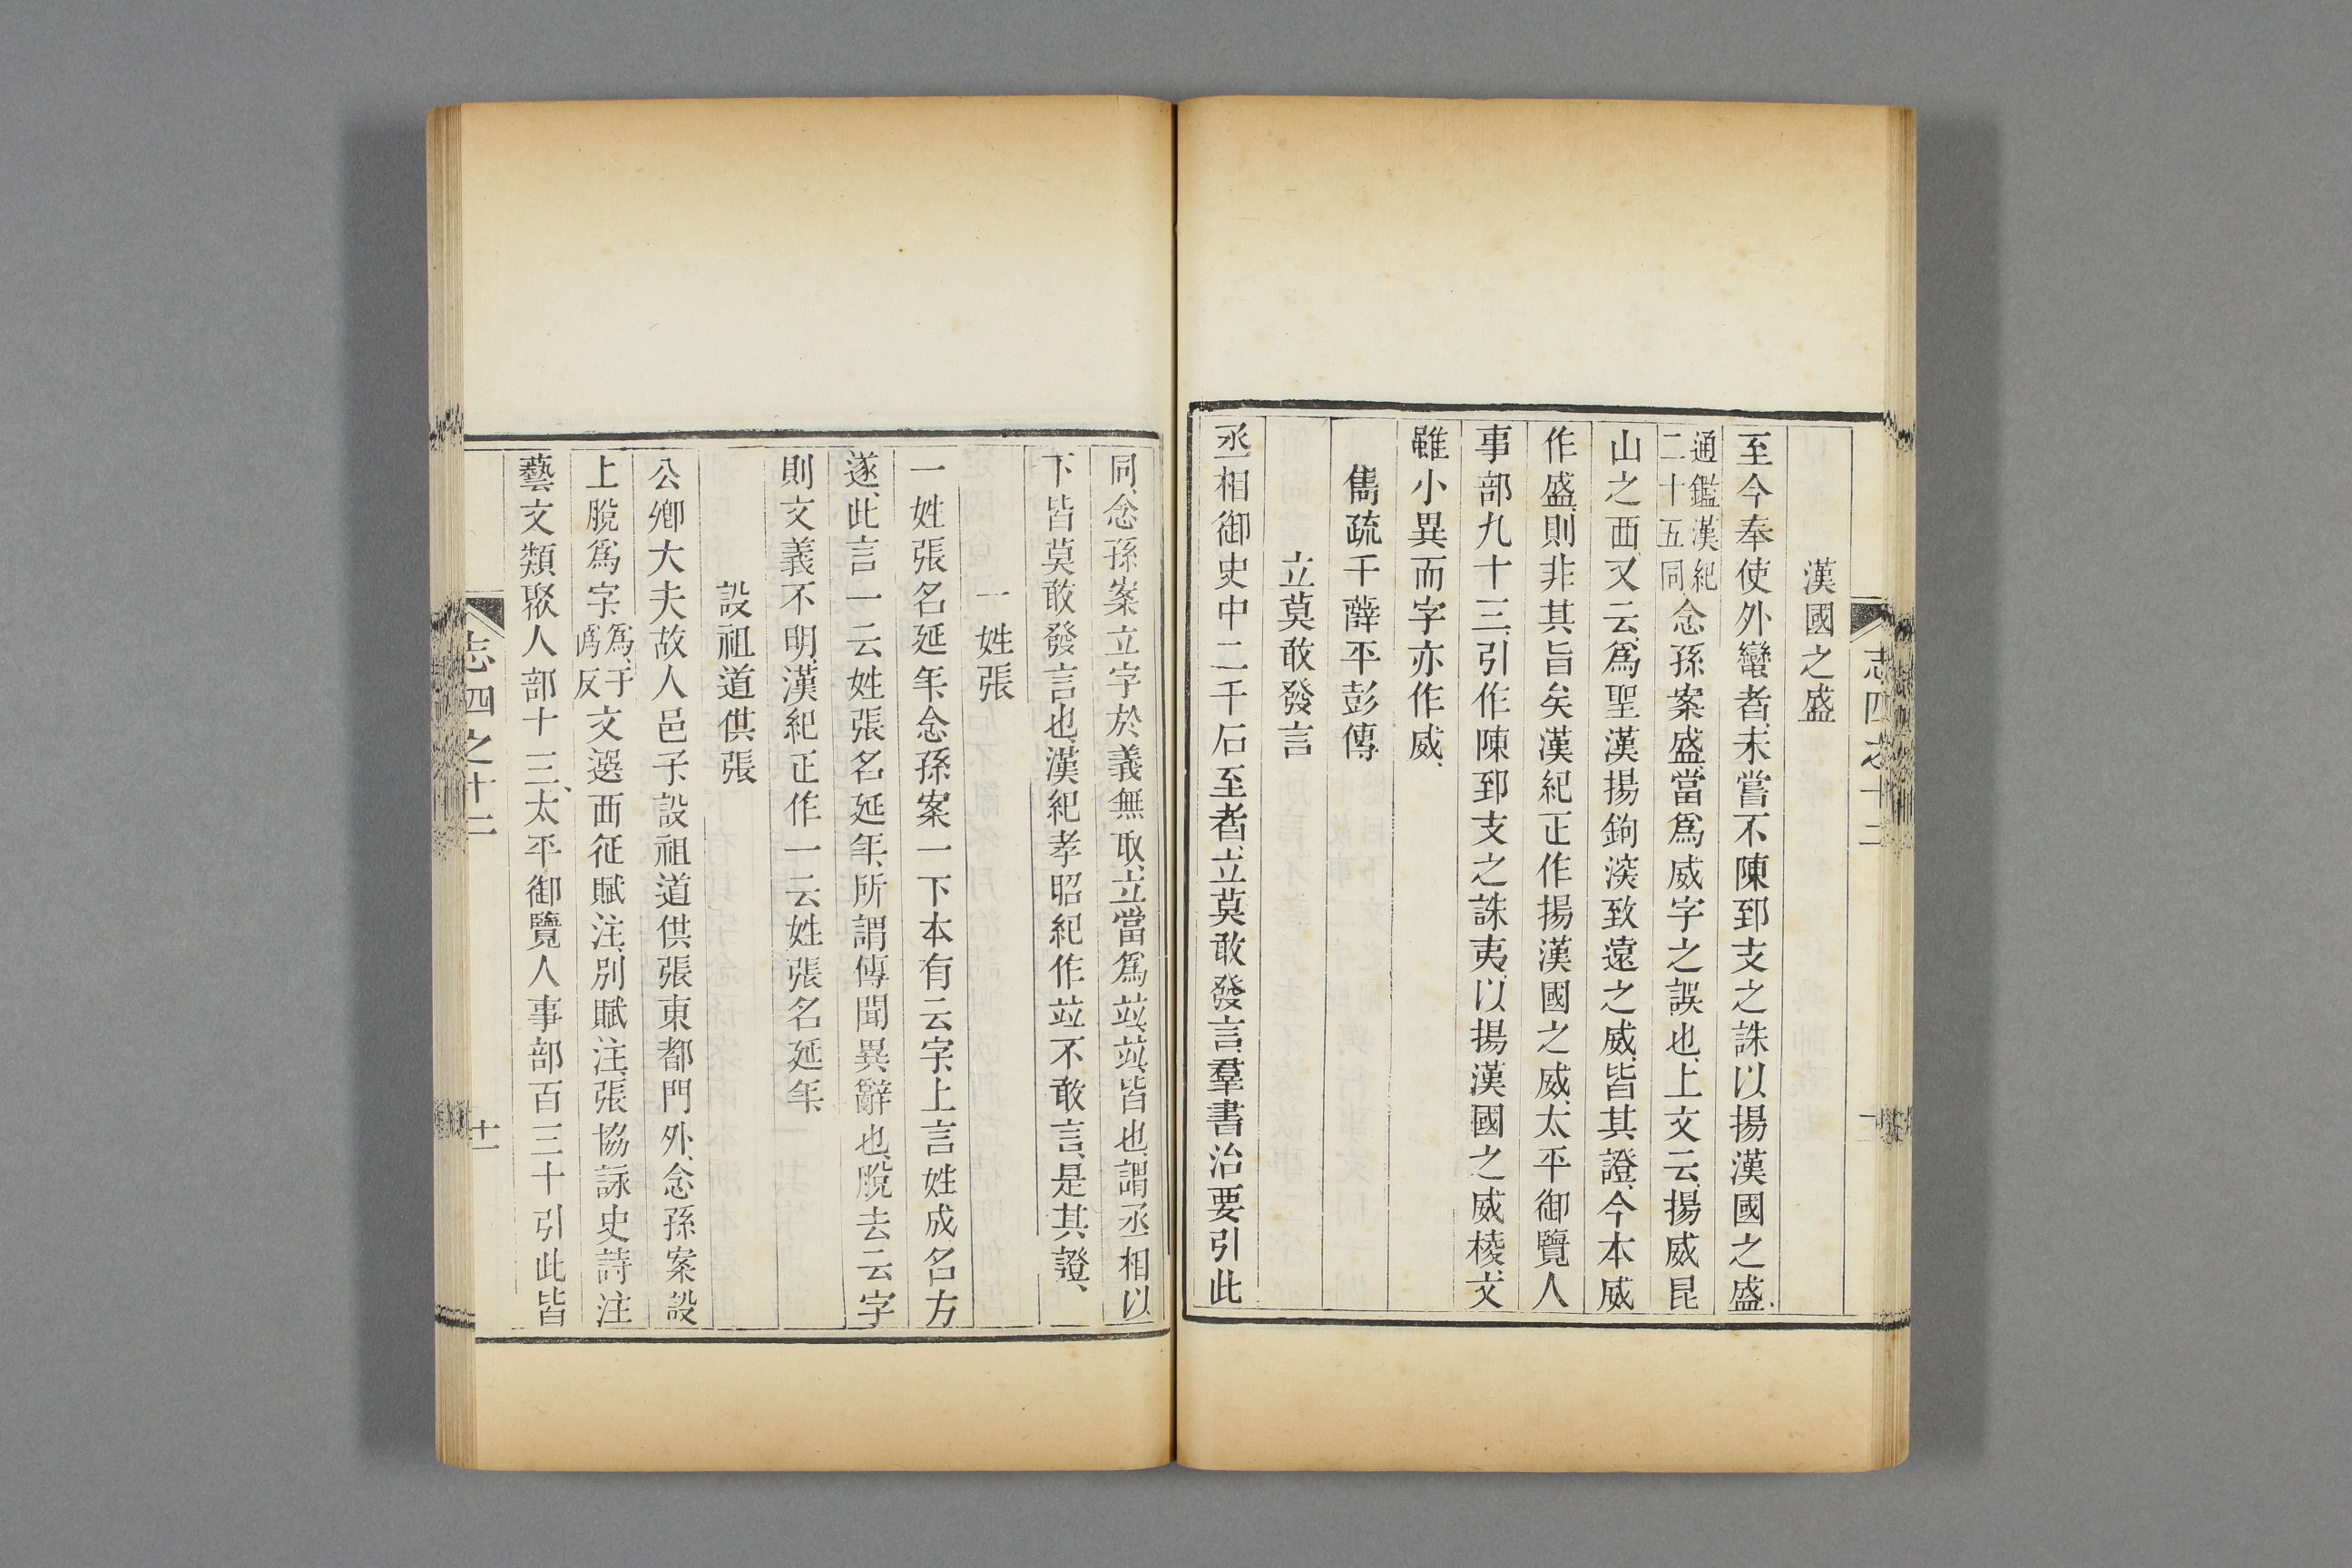 漢國之盛
至今奉使外蠻者、未嘗不陳郅支之誅以揚漢國之盛、
通鑑漢紀二十五同念孫案盛、當爲威字之誤也、上文云、揚威昆
山之西又云、爲聖漢揚鉤深致遠之威、皆其證、今本威
作盛、則非其旨矣漢紀正作揚漢國之威、太平御覽人
事部九十三、引作陳郅支之誅夷、以揚漢國之威棱、文
雖小異而字亦作威、
雋疏于薛平彭傳
立莫敢發言
丞相御史中二千石至者、立莫敢發言、羣書治要引此
志四之十二
同、念孫案立字於義無取、立當爲竝、竝、皆也、謂丞相以
下皆莫敢發言也、漢紀孝昭紀作竝不敢言、是其證、
一姓張
一姓張名延年、念孫案一下本有云字、上言姓成名方
遂、此言一云姓張名延年、所謂傳聞異辭也、脫去云字
則文義不明、漢紀正作一云姓張名延年、
設祖道供張
公卿大夫故人邑子、設祖道供張東都門外、念孫案設
上脫爲字、爲、于僞反文選西征賦注、別賦注、張協詠史詩注
藝文類聚人部十三、太平御覽人事部百三十引此皆
志四之十二
十一